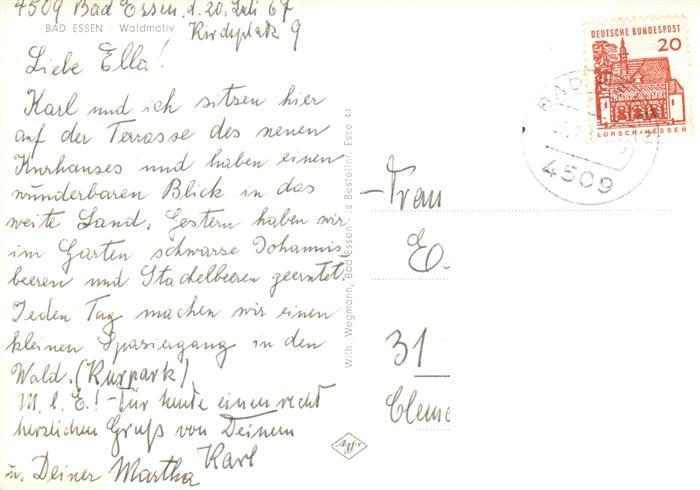 4509 Bad Essen, d. 20. Juli 67
BAD ESSEN - Waldmotiv
Kirchplatz 9
Liebe Ella!
Karl und ich sitzen hier
auf der Terrasse des neuen
Kurhauses und haben einen
wunderbaren Blick in das
weite Land. Gestern haben wir
im Garten schwarze Johannis
beeren und Stachelbeeren geerntet.
Jeden Tag machen wir einen
kleinen Spaziergang in den
Wald. (Kurpark)
M. l. E.! Für heute einen recht
herzlichen Gruß von Deinem
Karl
u. Deiner Martha
Wilh. Wegmann, Bad Essen Bestellnr. Esse 44
Agfa
DEUTSCHE BUNDESPOST
20
LORSCH/HESSEN
BAD
4509
Frau
E.
31